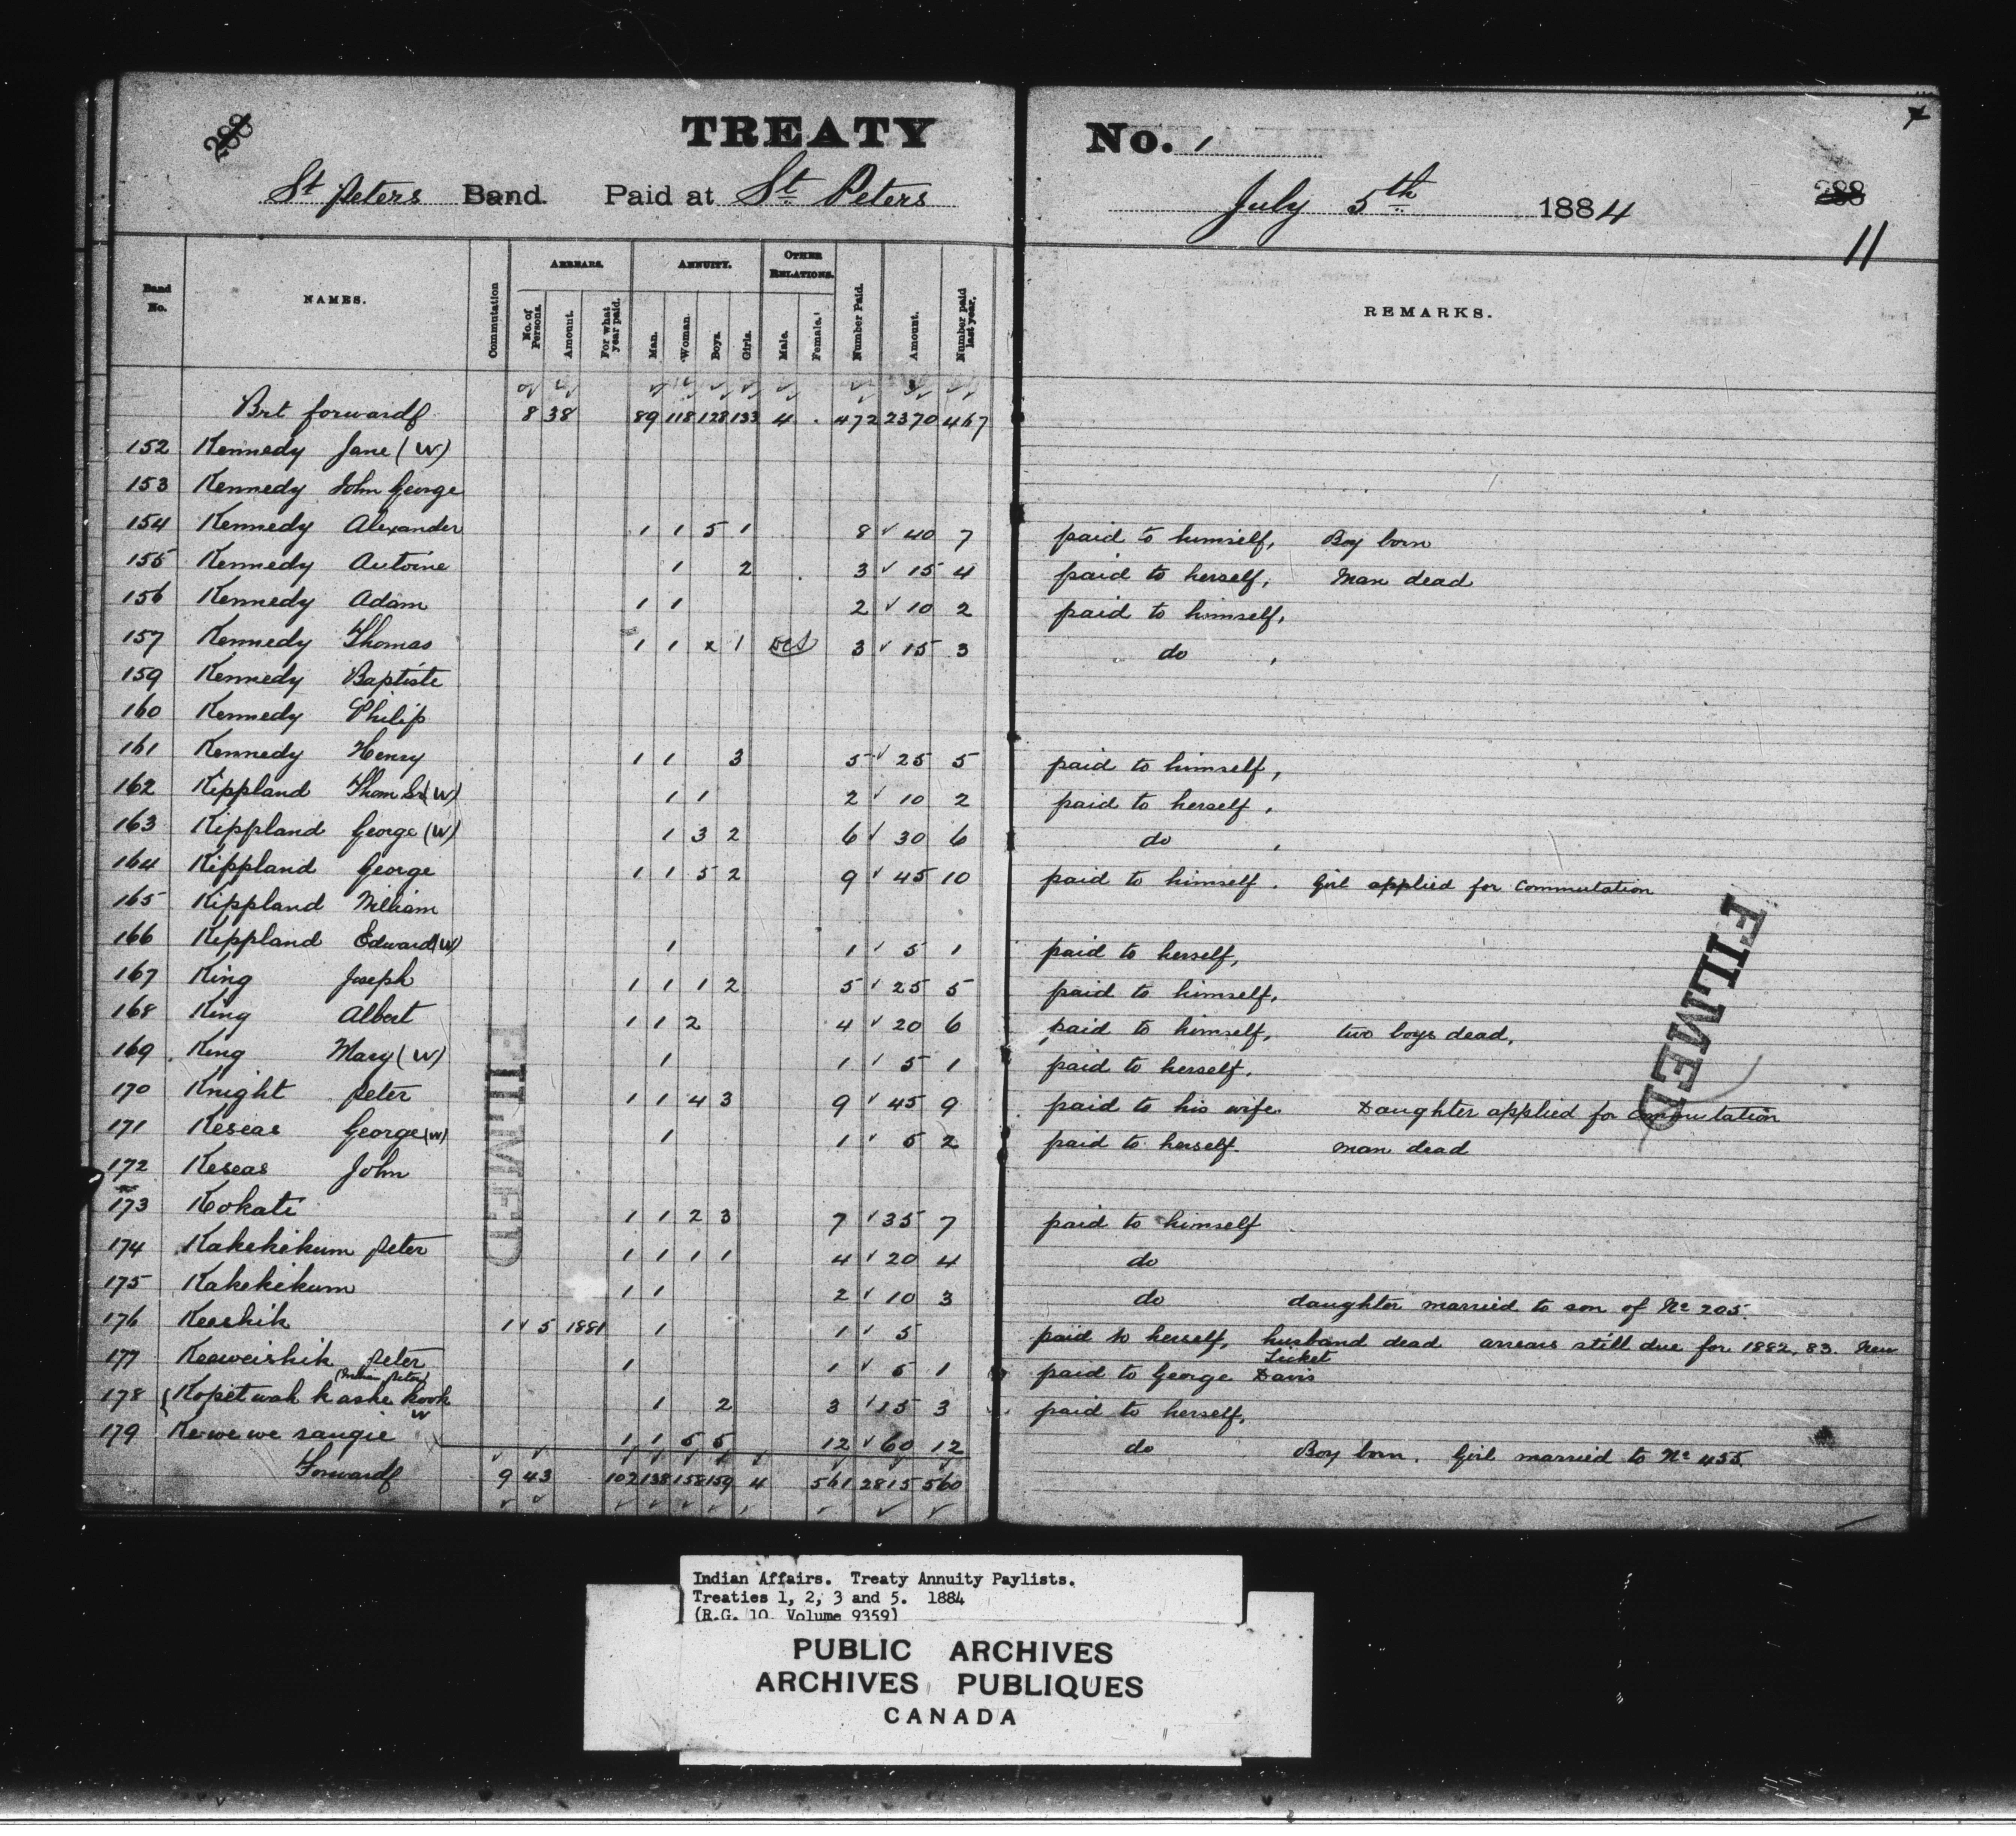 288
TREATY No. 1
St Peters Band. Paid at St. Peters July 5th 1884 288
11
Band No. NAMES. Commutation ARREARS. No. of Persons. Amount. For what year paid. ANNUITY. Man. Woman. Boys. Girls. OTHER RELATIONS. Male. Female. Number Paid. Amount. Number paid last year. REMARKS.
Brt forward 8 38 89 118 128 133 4 . 472 2370 467
152 Kennedy Jane (W)
153 Kennedy John George
154 Kennedy Alexander 1 1 5 1 8 ✓ 40 7 paid to himself, Boy born
155 Kennedy Antoine 1 2 3 ✓ 15 4 paid to herself, Man dead
156 Kennedy Adam 1 1 2 ✓ 10 2 paid to himself,
157 Kennedy Thomas 1 1 x 1 3 ✓ 15 3 do ,
159 Kennedy Baptiste
160 Kennedy Philip
161 Kennedy Henry 1 1 3 5 ✓ 25 5 paid to himself,
162 Kippland Thom Sr (W) 1 1 2 ✓ 10 2 paid to herself,
163 Kippland George (W) 1 3 2 6 ✓ 30 6 do ,
164 Kippland George 1 1 5 2 9 ✓ 45 10 paid to himself. Girl applied for Commutation
165 Kippland William
166 Kippland Edward (W) 1 1 ✓ 5 1 paid to herself,
167 King Joseph 1 1 1 2 5 ✓ 25 5 paid to himself,
168 King Albert 1 1 2 4 ✓ 20 6 paid to himself, two boys dead,
169 King Mary (W) 1 1 ✓ 5 1 paid to herself.
170 Knight Peter 1 1 4 3 9 ✓ 45 9 paid to his wife. Daughter applied for commutation
171 Keseas George (W) 1 1 ✓ 5 2 paid to herself. man dead
172 Keseas John
173 Kokati 1 1 2 3 7 ✓ 35 7 paid to himself
174 Kakekikum Peter 1 1 1 1 4 ✓ 20 4 do
175 Kakekikum 1 1 2 ✓ 10 3 do daughter married to son of No 205.
176 Keeshik 1 ✓ 5 1881 1 1 ✓ 5 paid to herself, husband dead arrears still due for 1882, 83. New Ticket
177 Keeweishik Peter 1 1 ✓ 5 1 paid to George Davis
(Indian Peter)
178 { Kopetwah kashe kook W 1 2 3 ✓ 15 3 paid to herself,
179 Kewewe sangie 1 1 5 5 12 ✓ 60 12 do Boy born. Girl married to No 455.
Forward 9 43 102 138 158 159 4 561 2815 560
FILMED
FILMED
Indian Affairs. Treaty Annuity Paylists.
Treaties 1, 2, 3 and 5. 1884
(R.G. 10 Volume 9359)
PUBLIC ARCHIVES
ARCHIVES PUBLIQUES
CANADA